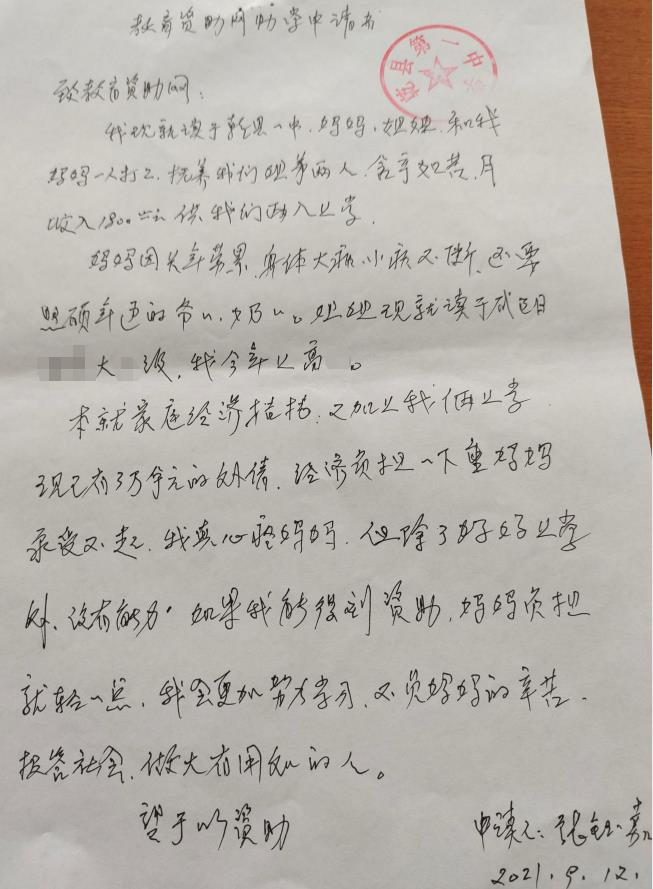 教育资助网助学申请书
县第一中
致教育資助网：
我现就读于乾县一中，妈妈、姐姐、和我
妈妈一人打工，抚养我们姐弟两人，含辛如苦，月
收入1800元供我们两人上学。
妈妈因长年劳累，身体大病小病不断，还要
照顾年迈的爷爷、奶奶。姐姐现就读于咸阳
大 级，我今年上高 。
本就家庭经济拮据，又加上我俩上学
现已有3万余元的外债，经济负担一下重妈妈
承受不起，我真心疼妈妈，但除了好好上学
外，没有能力。如果我能得到資助，妈妈负担
就轻一点，我会更加努力学习，不负妈妈的辛苦，
报答社会，做大有用处的人。
望予以資助
申请人：张钰嘉
2021.9.12.